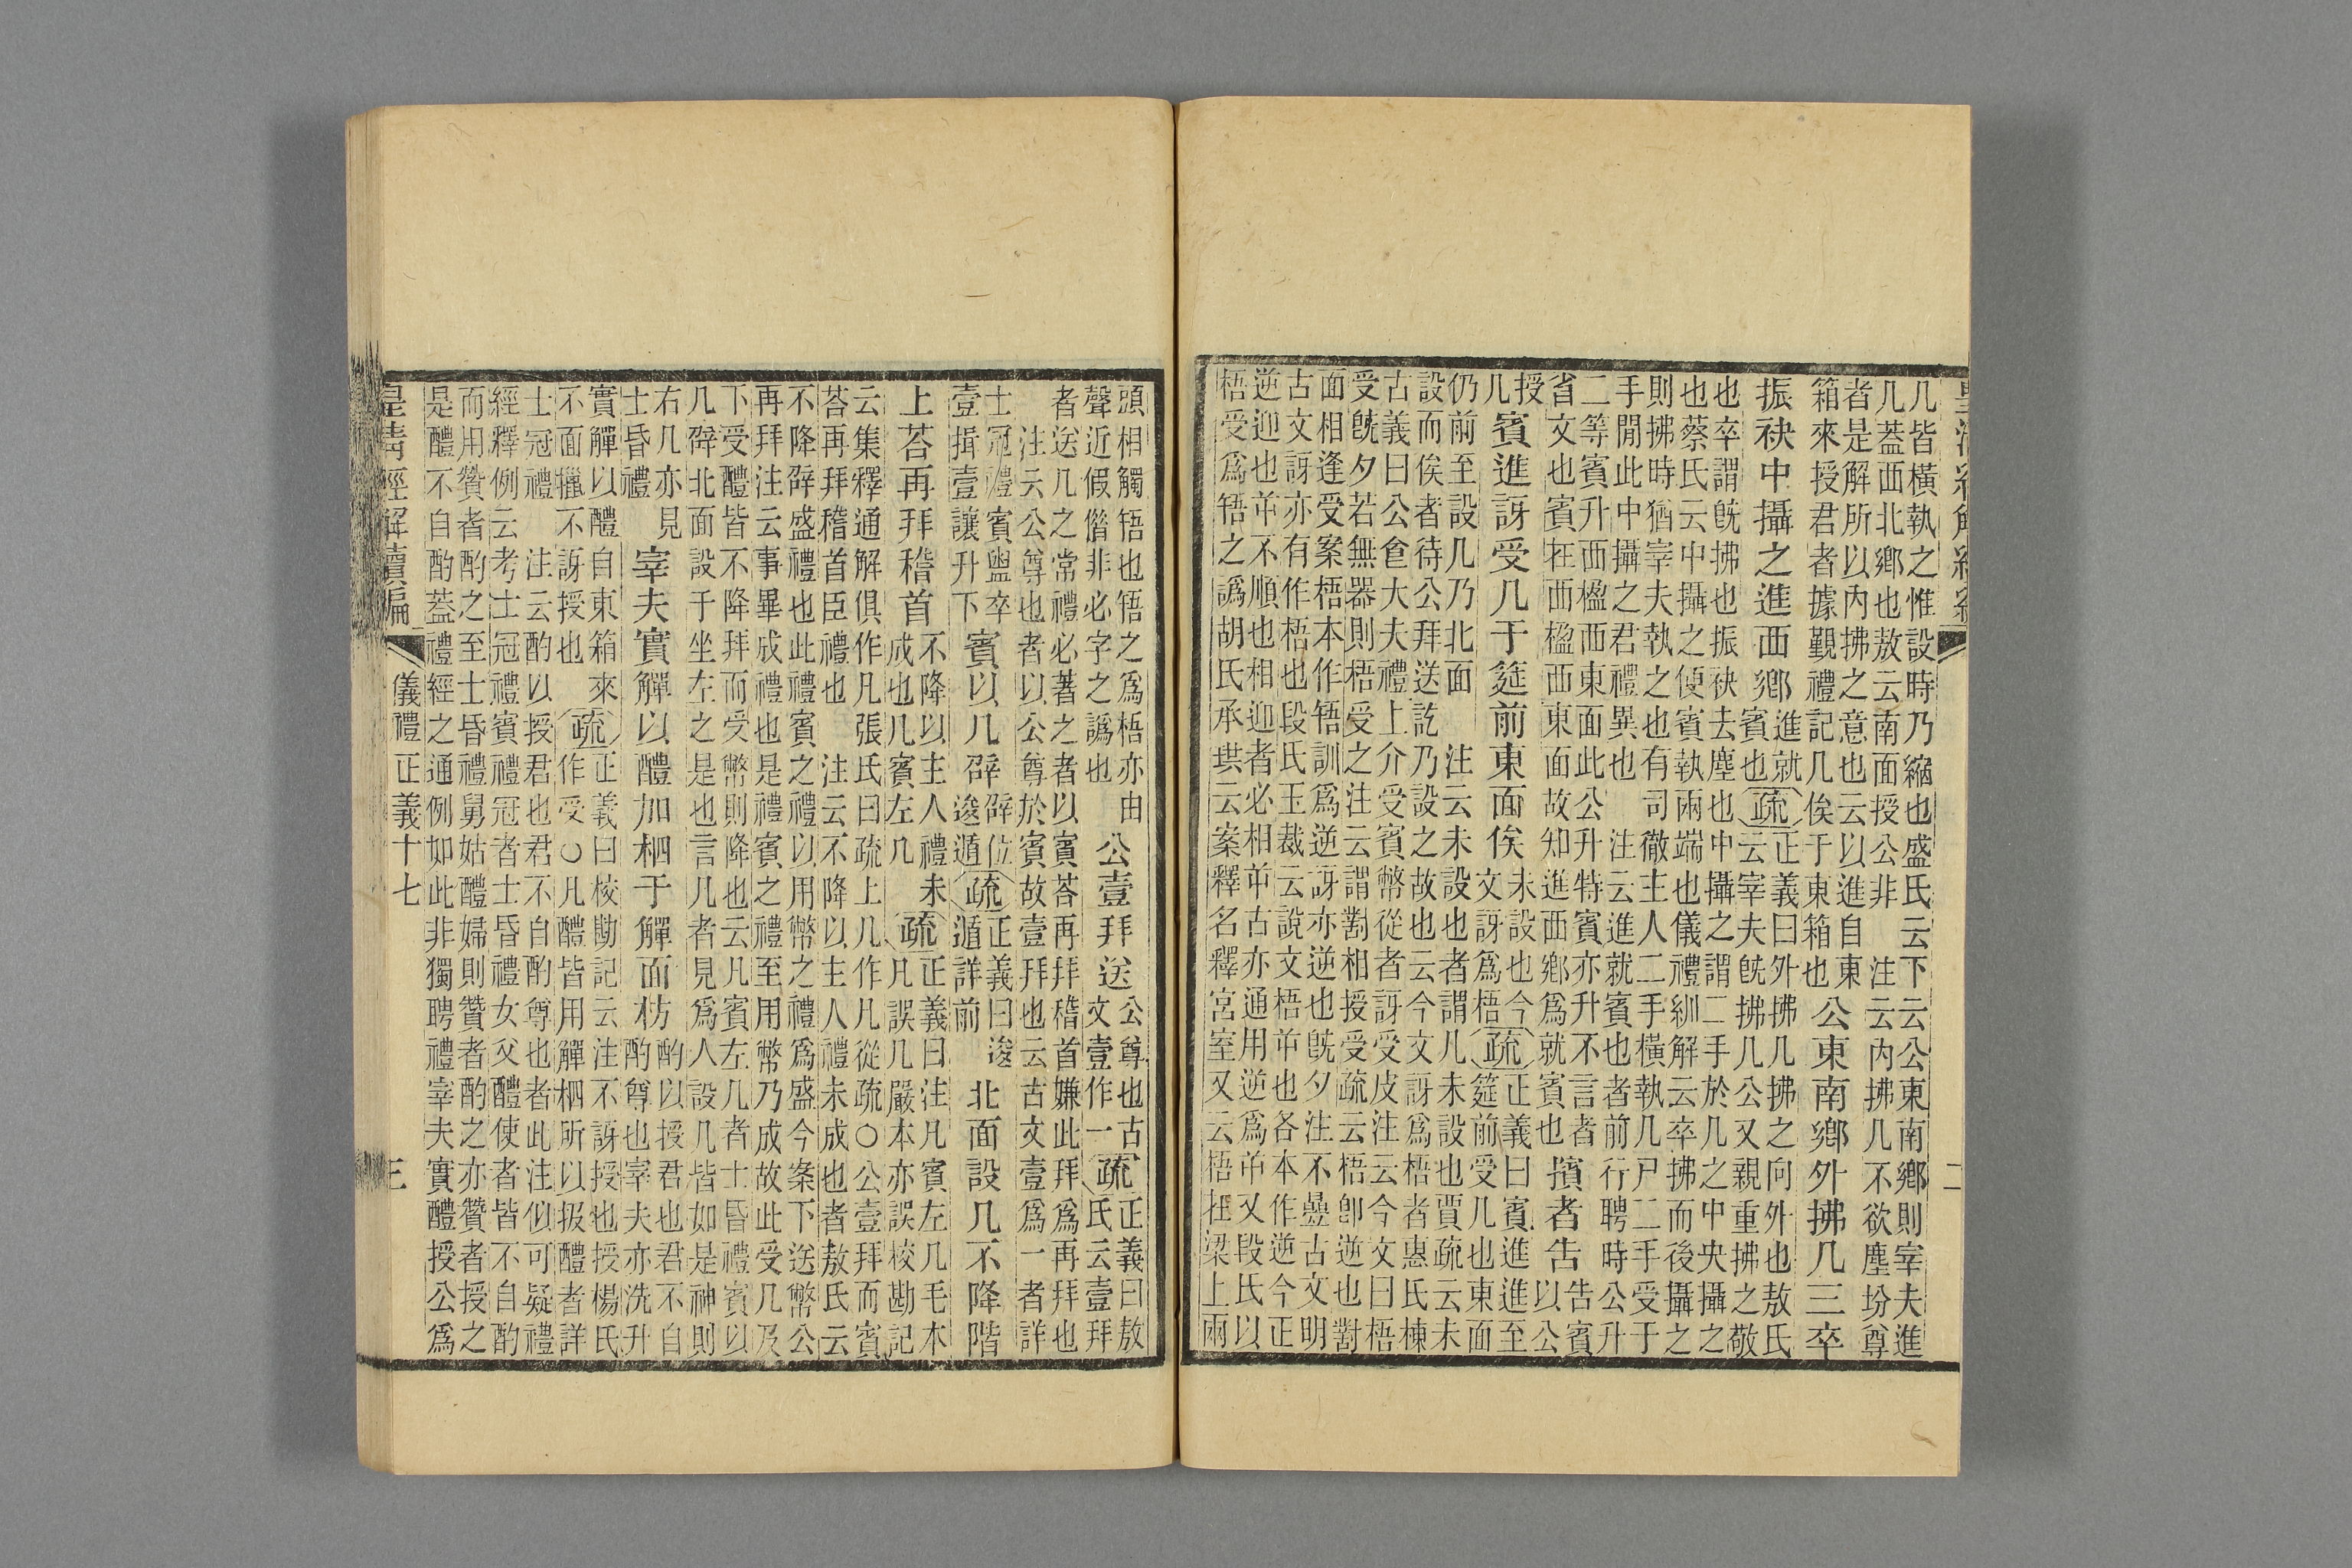 几皆橫執之惟設時乃縮也盛氏云下云公東南鄉則宰夫進
几蓋西北鄉也敖云南面授公非　注云内拂几不欲塵坋尊
者是解所以内拂之意也云以進自東
箱來授君者據覲禮記几俟于東箱也
公東南鄉外拂几三卒
振袂中攝之進西鄉
進就
賓也
疏
正義曰外拂几拂之向外也敖氏
云宰夫旣拂几公又親重拂之敬
也卒謂旣拂也振袂去塵也中攝之謂二手於几之中央攝之
也蔡氏云中攝之便賓執兩端也儀禮紃解云卒拂而後攝之
則拂時猶宰夫執之也有司徹主人二手橫執几尸二手受于
手閒此中攝之君禮異也　注云進就賓也者前行聘時公升
二等賓升西楹西東面此公升特賓亦升不言者
省文也賓在西楹西東面故知進西鄉爲就賓也
擯者告
告賓
以公
授
几
賓進訝受几于筵前東面俟
未設也今
文訝爲梧
疏
正義曰賓進進至
筵前受几也東面
仍前至設几乃北面　注云未設也者謂几未設也賈疏云未
設而俟者待公拜送訖乃設之故也云今文訝爲梧者惠氏棟
古義曰公食大夫禮上介受賓幣從者訝受皮注云今文曰梧
受旣夕若無器則梧受之注云謂對相授受疏云梧即逆也對
面相逢受案梧本作啎訓爲逆訝亦逆也旣夕注不曡古文明
古文訝亦有作梧也段氏玉裁云說文梧屰也各本作逆今正
逆迎也屰不順也相迎者必相屰古亦通用逆爲屰又段氏以
梧受爲啎之譌胡氏承珙云案釋名釋宮室又云梧在梁上兩
二
頭相觸啎也啎之爲梧亦由
聲近假借非必字之譌也
公壹拜送
公尊也古
文壹作一
疏
正義曰敖
氏云壹拜
者送几之常禮必著之者以賓荅再拜稽首嫌此拜爲再拜也
注云公尊也者以公尊於賓故壹拜也云古文壹爲一者詳
士冠禮賓盥卒
壹揖壹讓升下
賓以几辟
辟位
逡遁
疏
正義曰逡
遁詳前
北面設几不降階
上荅再拜稽首
不降以主人禮未
成也凡賓左几
疏
正義曰注凡賓左几毛本
凡誤几嚴本亦誤校勘記
云集釋通解俱作凡張氏曰疏上几作凡從疏○公壹拜而賓
荅再拜稽首臣禮也　注云不降以主人禮未成也者敖氏云
不降辟盛禮也此禮賓之禮以用幣之禮爲盛今案下送幣公
再拜注云事畢成禮也是禮賓之禮至用幣乃成故此受几及
下受醴皆不降拜而受幣則降也云凡賓左几者士昏禮賓以
几辟北面設于坐左之是也言凡者見爲人設几皆如是神則
右几亦見
士昏禮
宰夫實觶以醴加柶于觶面枋
酌以授君也君不自
酌尊也宰夫亦洗升
實觶以醴自東箱來
不面擸不訝授也
疏
正義曰校勘記云注不訝授也授楊氏
作受○凡醴皆用觶柶所以扱醴者詳
士冠禮　注云酌以授君也君不自酌尊也者此注似可疑禮
經釋例云考士冠禮賓禮冠者士昏禮女父醴使者皆不自酌
而用贊者酌之至士昏禮舅姑醴婦則贊者酌之亦贊者授之
是醴不自酌蓋禮經之通例如此非獨聘禮宰夫實醴授公爲
皇清經解續編
儀禮正義十七
三